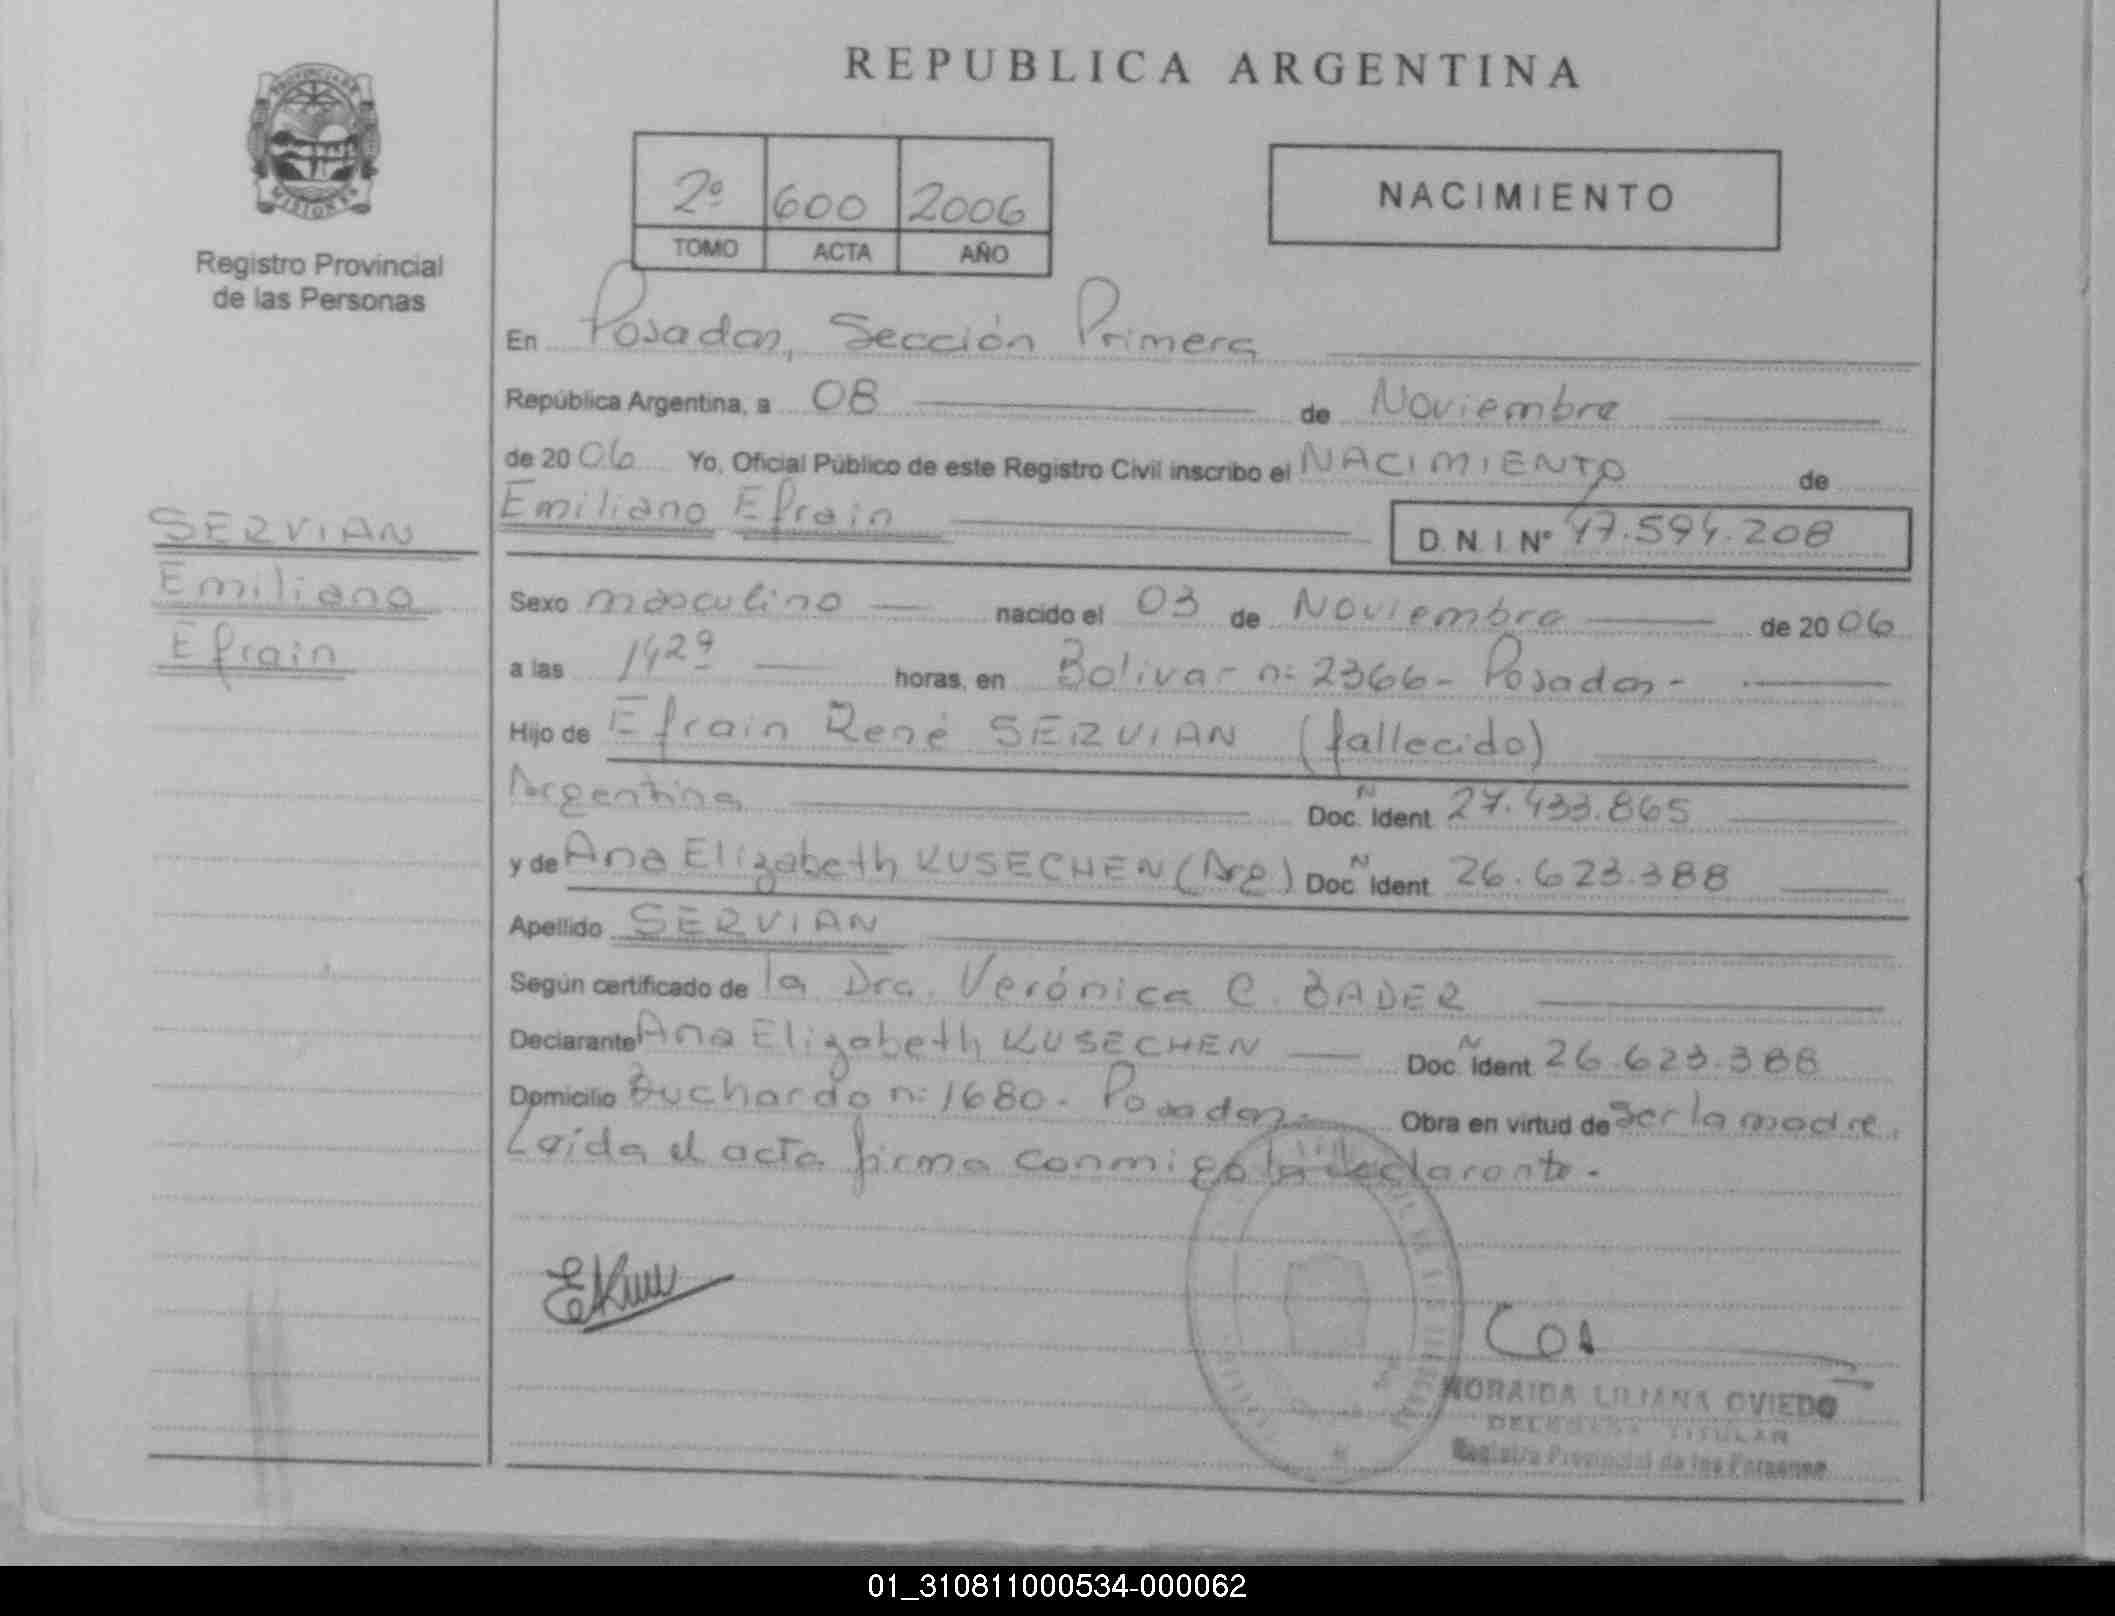 REPUBLICA ARGENTINA
PROVINCIA DE
MISIONES
Registro Provincial
de las Personas
2º 600 2006
TOMO ACTA AÑO
NACIMIENTO
En Posadas, Sección Primera
República Argentina, a 08 de Noviembre
de 2006 Yo, Oficial Público de este Registro Civil inscribo el NACIMIENTO de
Emiliano Efrain D.N.I. Nº 47.594.208
SERVIAN
Emiliano
Efrain
Sexo masculino nacido el 03 de Noviembre de 2006
a las 1429 horas, en Bolivar n: 2366 - Posadas -
Hijo de Efrain René SERVIAN (fallecido)
Argentina Doc. N Ident 27.433.865
y de Ana Elizabeth KUSECHEN (Arg) Doc. N Ident 26.623.388
Apellido SERVIAN
Según certificado de la Dra. Verónica C. BADER
Declarante Ana Elizabeth KUSECHEN Doc. N Ident 26.623.388
Domicilio Buchardo n: 1680. Posadas. Obra en virtud de ser la madre.
Leida el acta firma conmigo la declarante.
NORAIDA LILIANA OVIEDO
TITULAR
Registro Provincial de las Personas
01_310811000534-000062